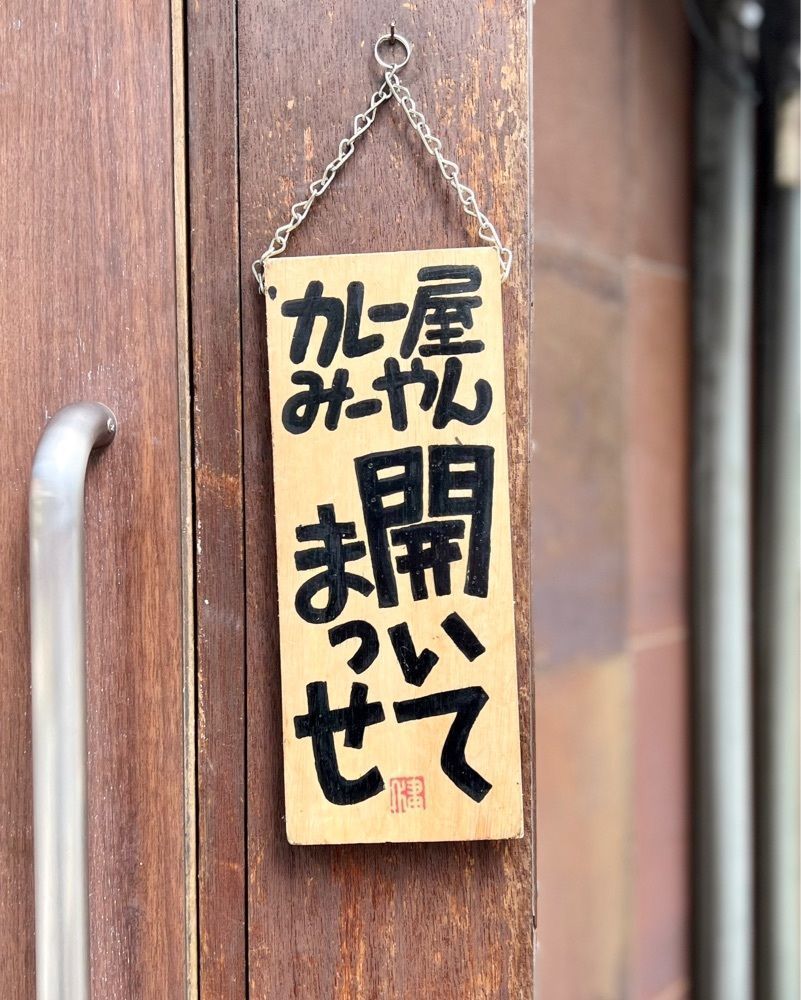 カレー屋
みーやん
開いて
まっせ